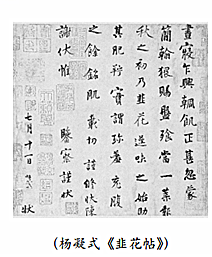 晝寢乍興輖飢正甚忽蒙
簡翰猥賜盤飧當一葉報
秋之初乃韭花逞味之始助
其肥羜實謂珍羞充腹
之餘銘肌載切謹修狀陳
謝伏惟鑒察謹狀
七月十一日狀
(杨凝式《韭花帖》)